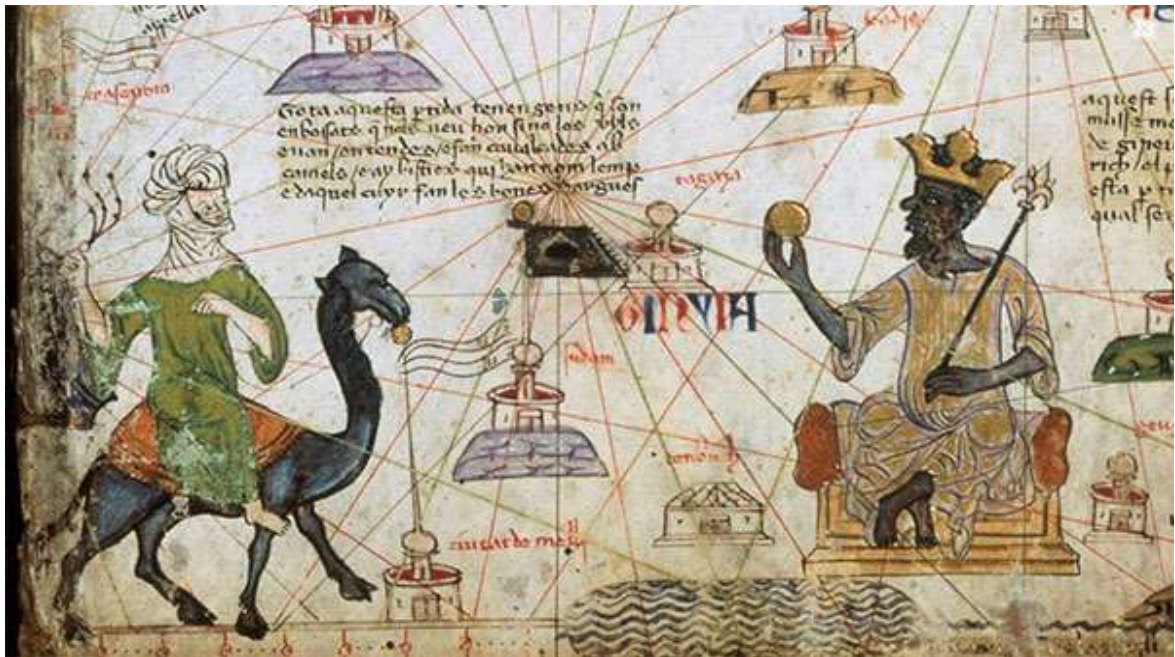 Tota aquesta ptida tenen gens q son
enbossats q nols veu hom sino los uyls
e van / en tendes / e fan caualcades ab
camels / e ay bisties qui han nom lemp
e daquel cuyr fan les bones dargues
tagaza
GINYIA
sudam
tenbuch
ciutat de melli
aquest
musse me
de gineu
rich / el
esta p
qual se